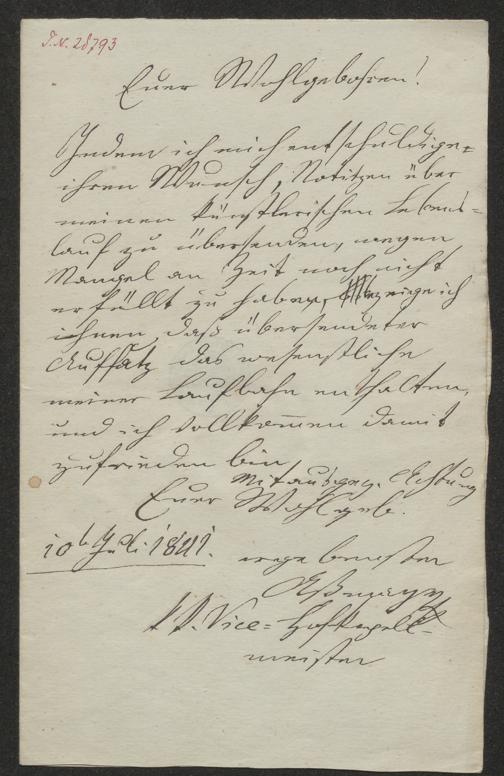 I.N. 28793
Euer Wohlgeboren!
Indem ich mich entschuldige
ihren Wunsch, Notitzen über
meinen künstlerischen Lebens=
lauf zu übersenden, wegen
Mangel an Zeit noch nicht
erfüllt zu haben, zeige ich
ihnen, daß übersendeter
Aufsatz das wesentliche
meiner Laufbahn enthalten,
und ich vollkommen damit
zufrieden bin
Mit ausgez. Achtung
Euer Wohlgeb.
10t Juli 1841.
ergebenster
Aßmayr
k k. Vice=Hofkapell=
meister